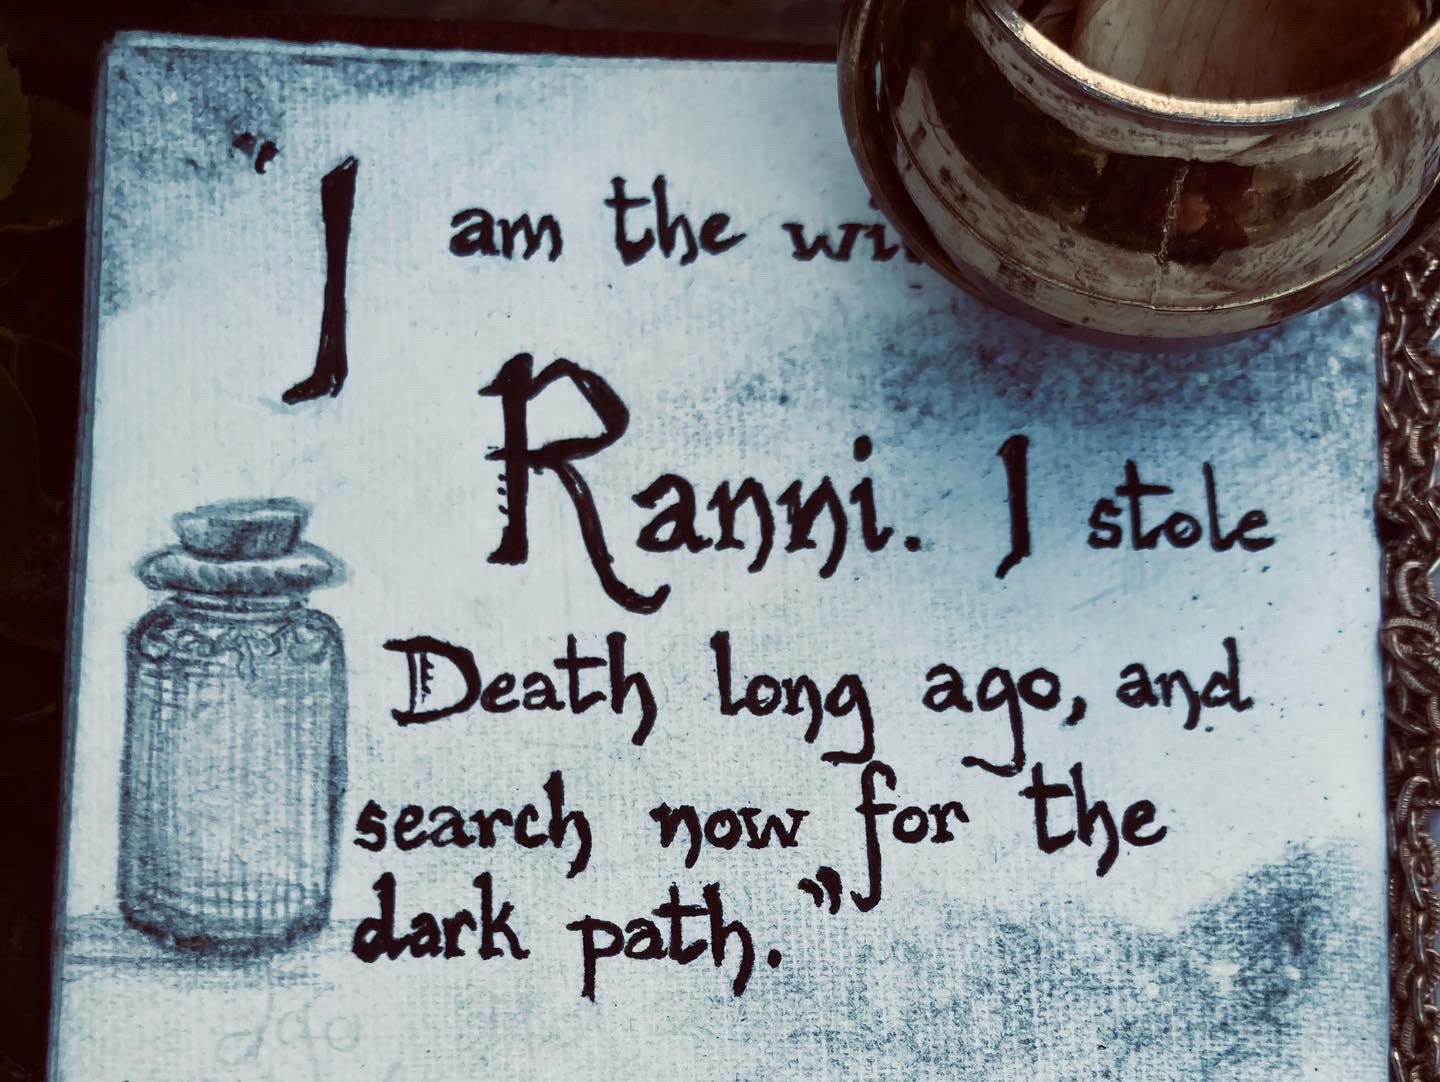 “I am the
Ranni. I stole
Death long ago, and
search now for the
dark path.”